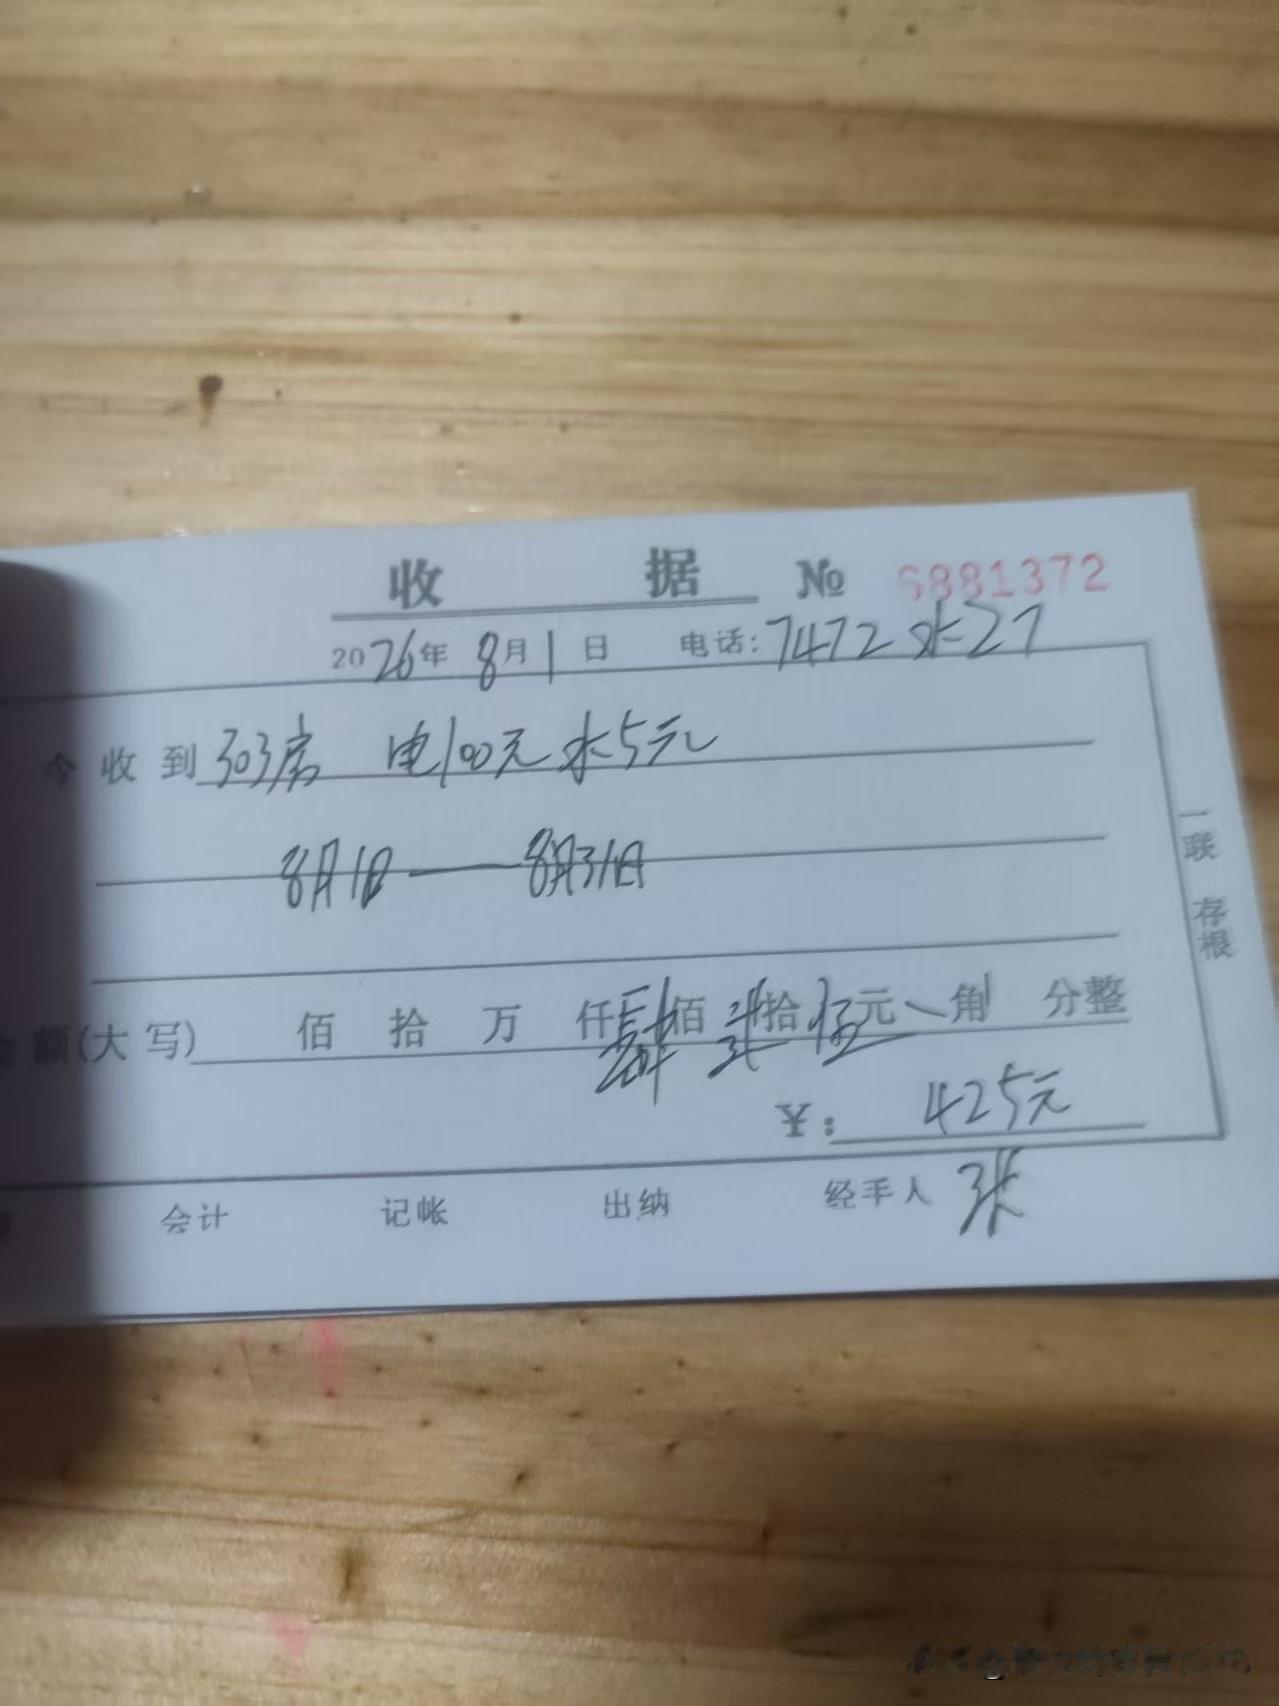 收 据 № 6881372
2026年 8月1日 电话:7472 水27
今收到303房 电100元 水5元
8月1日——8月31日
金额(大写) 佰 拾 万 仟肆佰 拾伍元 角 分整
¥: 425元
会计 记帐 出纳 经手人 张
一联 存根